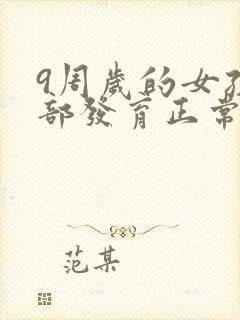 9周歲的女孩
部發育正常
范某